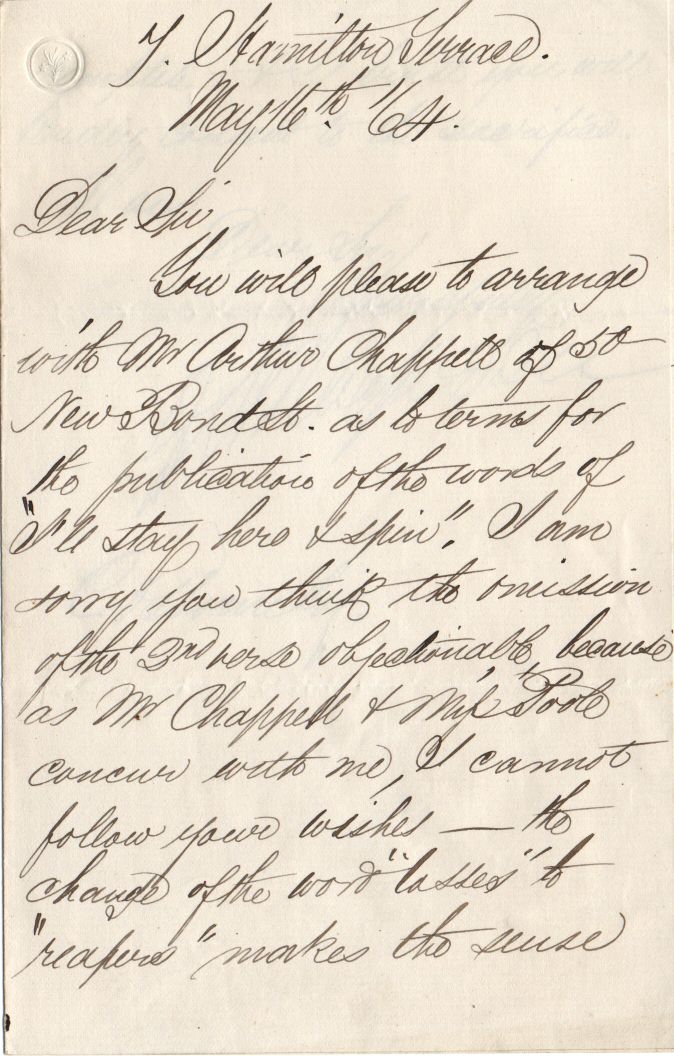 7. Hamilton Terrace.
May 16th /64.
Dear Sir
You will please to arrange
with Mr Arthur Chappell of 50
New Bond St. as to terms for
the publication of the words of
"I'll stay here & spin". I am
sorry you think the omission
of the 2nd verse objectionable, because
as Mr Chappell & Miss Poole
concur with me, I cannot
follow your wishes — the
change of the word "lasses" to
"reapers" makes the sense